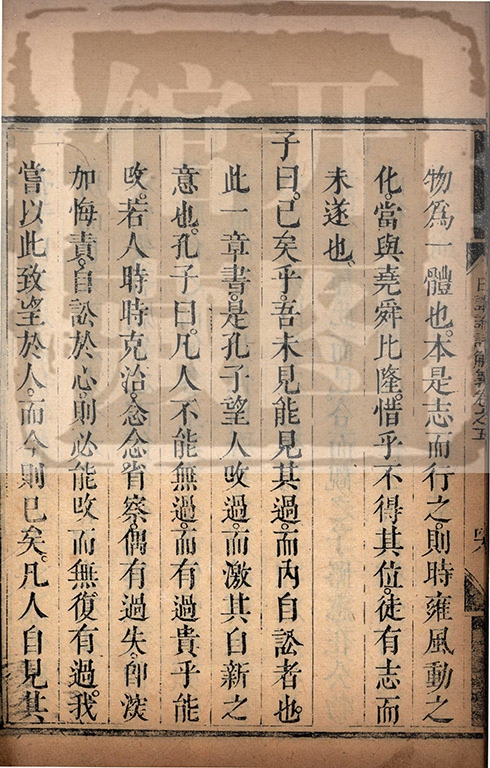 物為一體也。本是志而行之。則時雍風動之
化。當與堯舜比隆。惜乎不得其位。徒有志而
未遂也。
子曰。已矣乎。吾未見能見其過。而內自訟者也。
此一章書。是孔子望人改過。而激其自新之
意也。孔子曰。凡人不能無過。而有過貴乎能
改。若人時時克治。念念省察。偶有過失。即深
加悔責。自訟於心。則必能改而無復有過。我
嘗以此致望於人。而今則已矣。凡人自見其